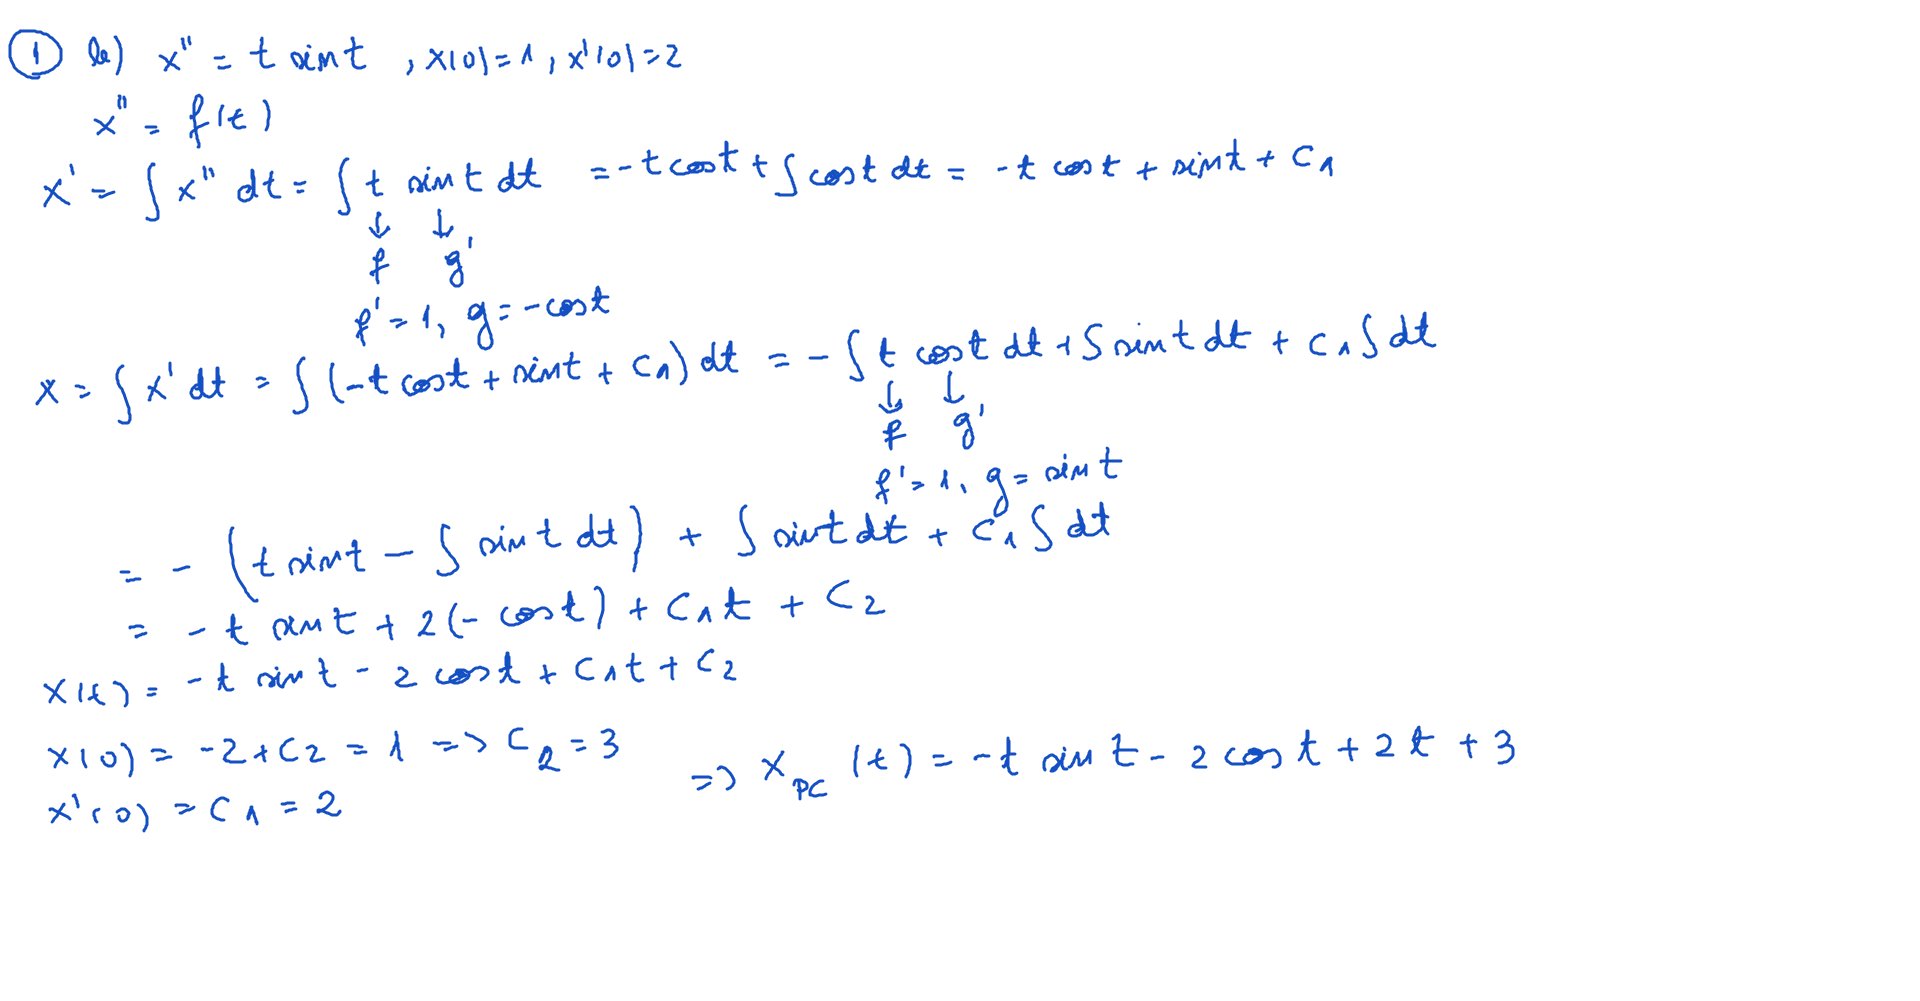 ① b) x'' = t sin t , x(0)=1, x'(0)=2
x'' = f(t)
x' = ∫ x'' dt = ∫ t sin t dt = -t cos t + ∫ cos t dt = -t cos t + sin t + C1
↓ ↓
f g'
f' = 1, g = -cos t
x = ∫ x' dt = ∫ (-t cos t + sin t + C1) dt = - ∫ t cos t dt + ∫ sin t dt + C1 ∫ dt
↓ ↓
f g'
f' = 1, g = sin t
= - (t sin t - ∫ sin t dt) + ∫ sin t dt + C1 ∫ dt
= -t sin t + 2(-cos t) + C1 t + C2
x(t) = -t sin t - 2 cos t + C1 t + C2
x(0) = -2 + C2 = 1 => C2 = 3
x'(0) = C1 = 2
=> x_PC (t) = -t sin t - 2 cos t + 2t + 3